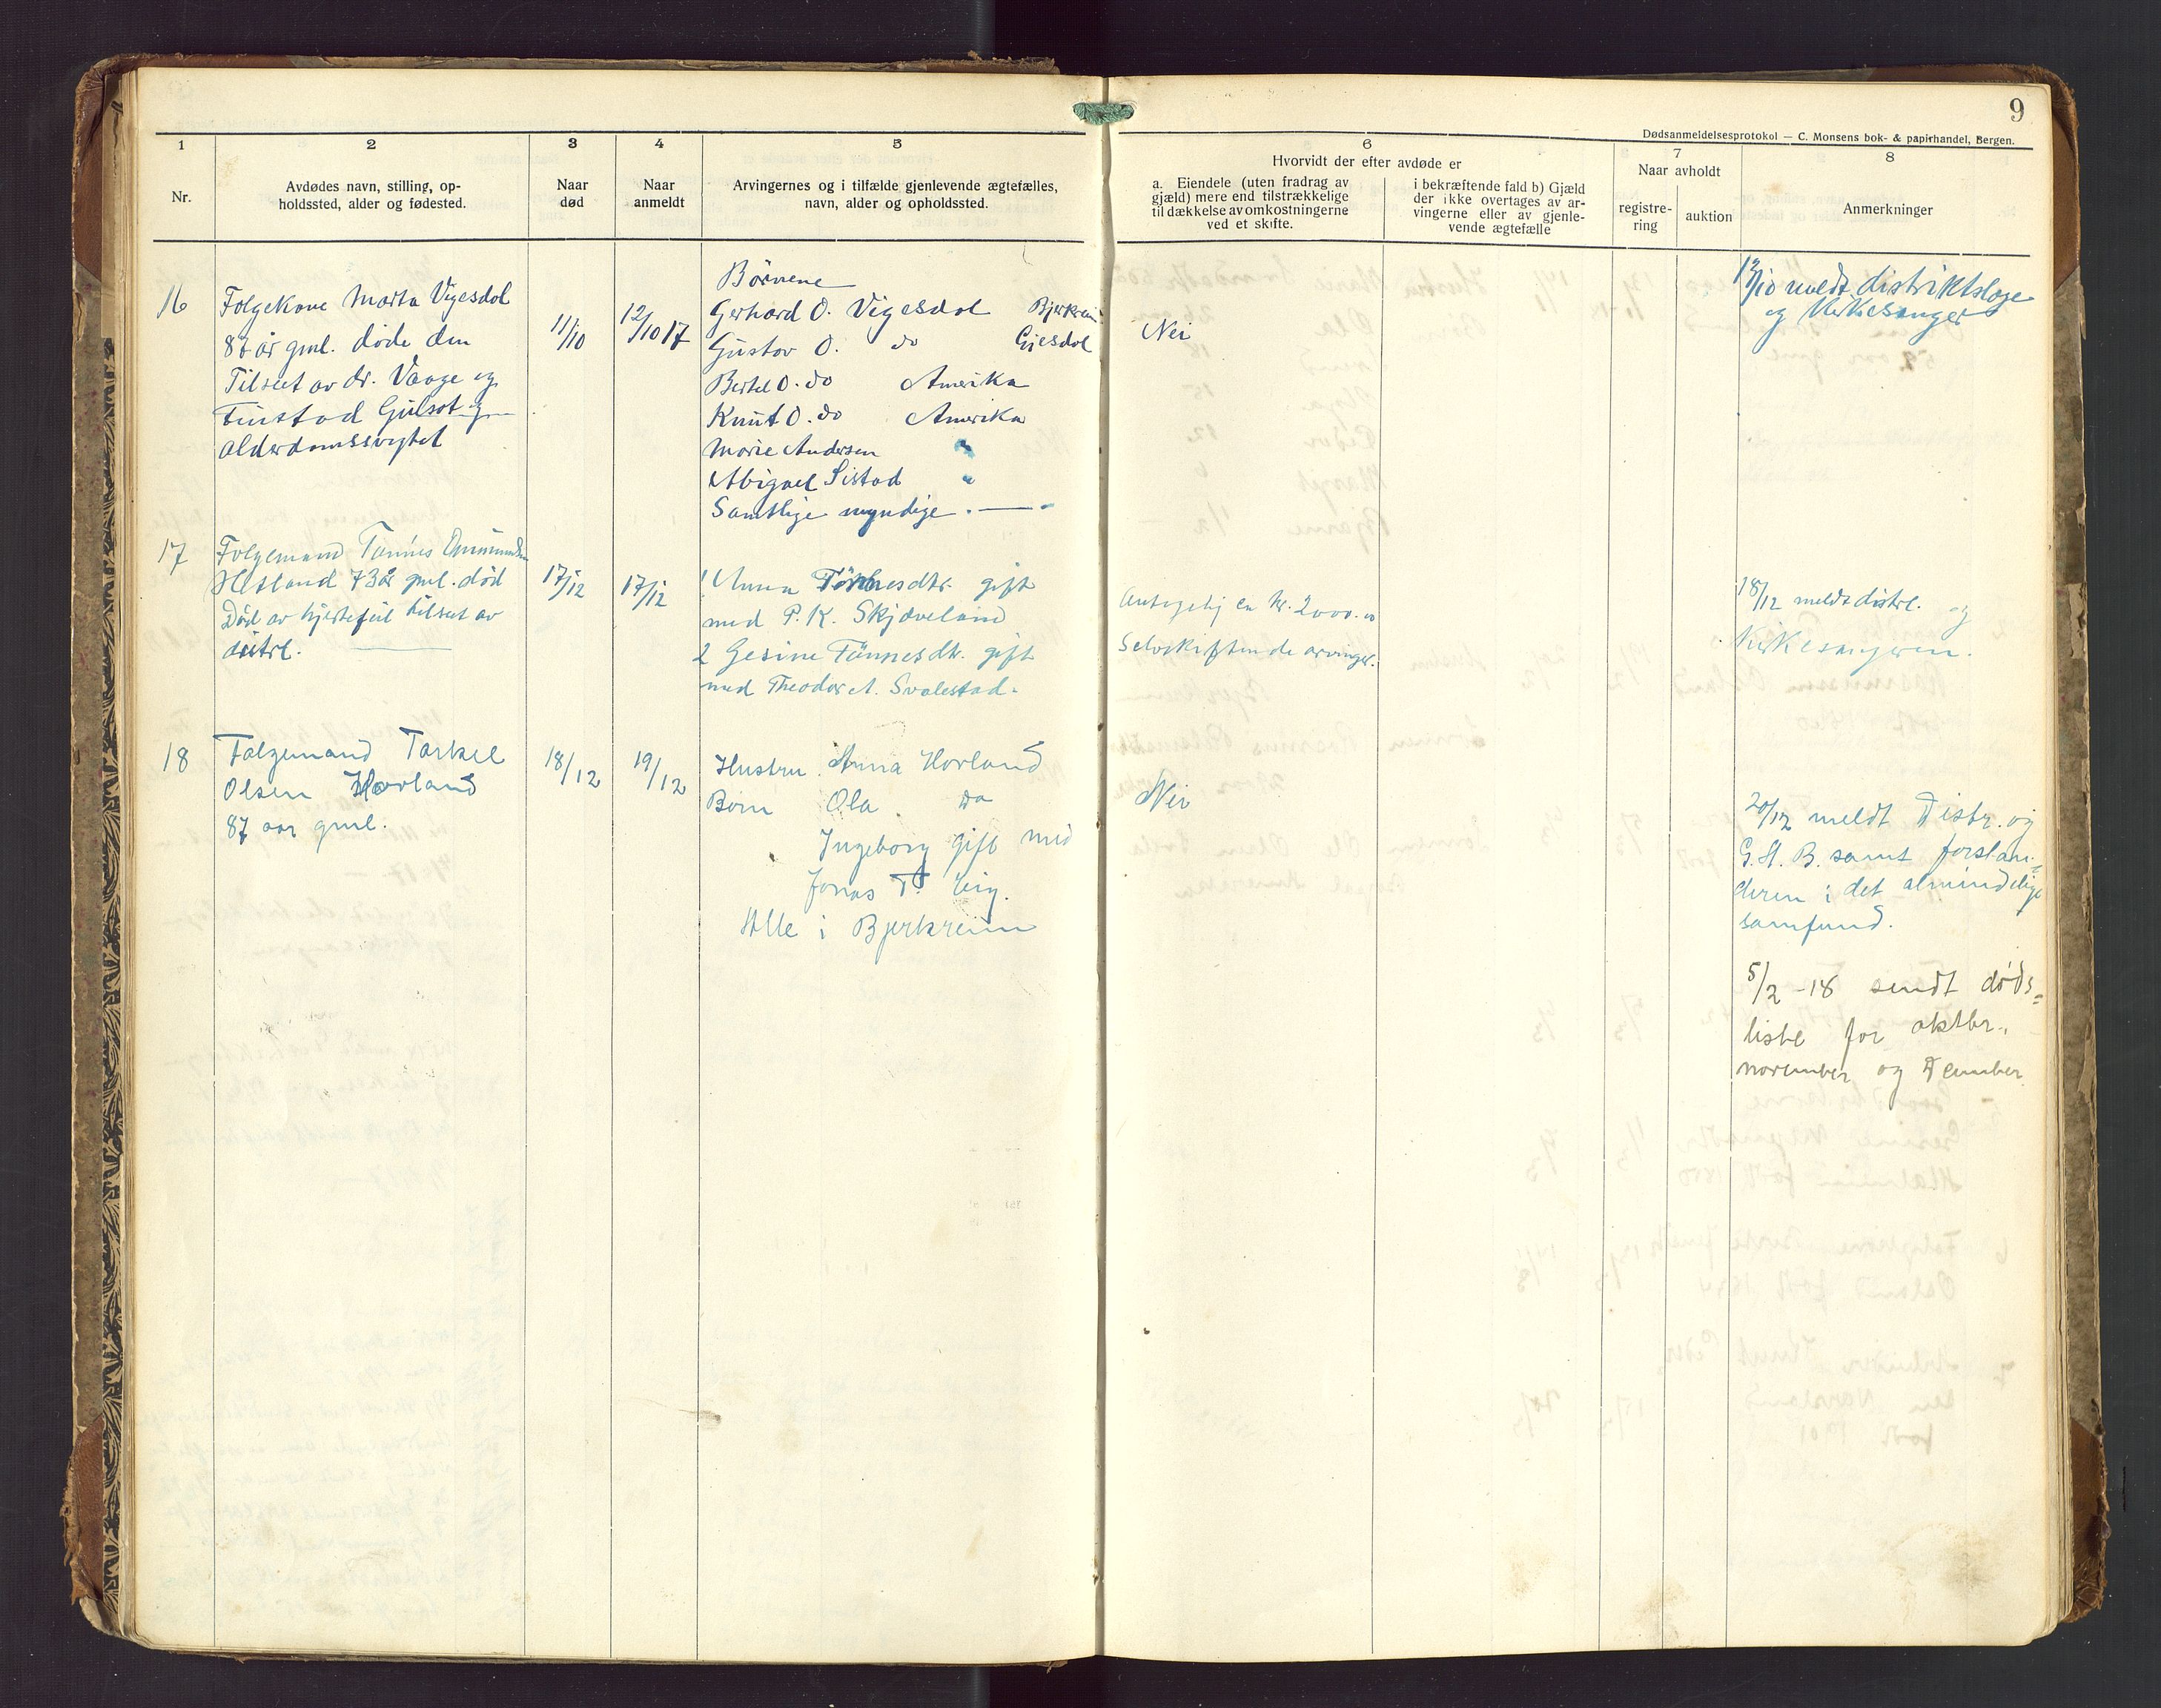 9
Dødsanmeldelsesprotokol — C. Monsens bok- & papirhandel, Bergen.
1
2
3
4
5
6
7
8
Nr.
Avdødes navn, stilling, op-
holdssted, alder og fødested.
Naar
død
Naar
anmeldt
Arvingernes og i tilfælde gjenlevende ægtefælles,
navn, alder og opholdssted.
Hvorvidt der efter avdøde er
a. Eiendele (uten fradrag av
gjæld) mere end tilstrækkelige
til dækkelse av omkostningerne
ved et skifte.
i bekræftende fald b) Gjæld
der ikke overtages av ar-
vingerne eller av gjenle-
vende ægtefælle
Naar avholdt
registre-
ring
auktion
Anmerkninger
16
Folgekone Marta Vigesdal
87 år gml. døde den
Tilseet av dr. Vaage og
Finstad Gulsot og
alderdomssvghet
11/10
12/10 17
Børnene
Gerhard O. Vigesdal Bjerkreim
Gustav O. do Giesdal
Bertel O. do Amerika
Knut O. do Amerika
Marie Andersen "
Abigael Sistad "
Samtlige myndige.
Nei
13/10 meldt distriktslæge
og Kirkesanger
17
Folgemand Tønnes Ommundsen
Hetland 73 år gml. død
Død av hjertefeil tilseet av
distrl.
17/12
17/12
1 Anna Tønnesdtr. gift
med P. K. Skjæveland
2 Gesine Tønnesdtr. gift
med Theodor A. Svalestad.
Antagelig ca kr. 2000.00
Selvskiftende arvinger.
18/12 meldt distrl. og
Kirkesangeren.
18
Folgemand Torkel
Olsen Hovland
87 aar gml.
18/12
19/12
Hustru Anna Hovland
Børn Ola Do
Ingeborg gift med
Jonas T. Eeg.
Alle i Bjerkreim
Nei
20/12 meldt Distr. og
G. H. B. samt forstan-
deren i det almindelige
samfund.
5/2 -18 sendt døds=
liste for oktbr.,
november og Desember